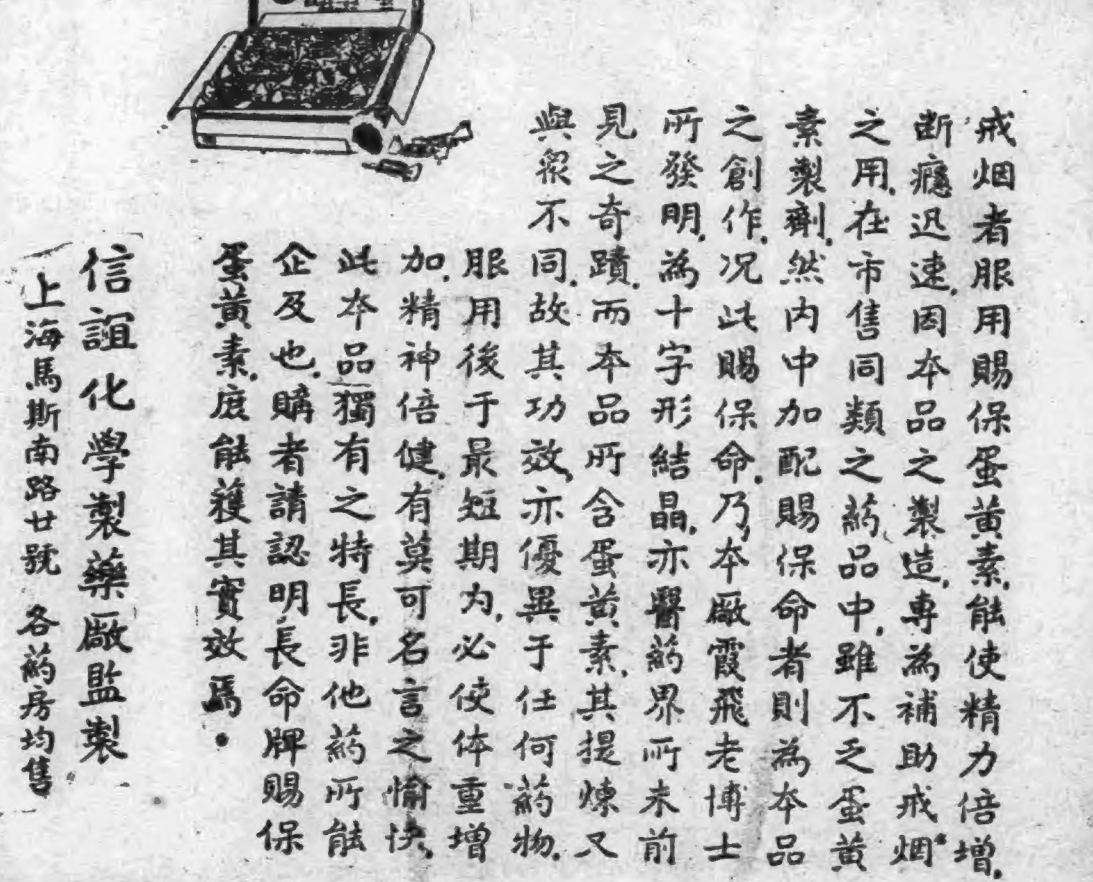 戒烟者服用賜保蛋黃素,能使精力倍增,
断癮迅速,因本品之製造,專為補助戒烟
之用,在市售同類之葯品中,雖不乏蛋黃
素製劑,然内中加配賜保命者則為本品
之創作,况此賜保命,乃本廠霞飛老博士
所發明,為十字形結晶,亦醫葯界所未前
見之奇蹟,而本品所含蛋黃素,其提煉又
與衆不同,故其功效,亦優異于任何葯物,
服用後于最短期内,必使体重增
加,精神倍健,有莫可名言之愉快,
此本品獨有之特長,非他葯所能
企及也,購者請認明長命牌賜保
蛋黃素,庶能獲其實效焉。
信誼化學製藥廠監製
上海馬斯南路廿號 各葯房均售